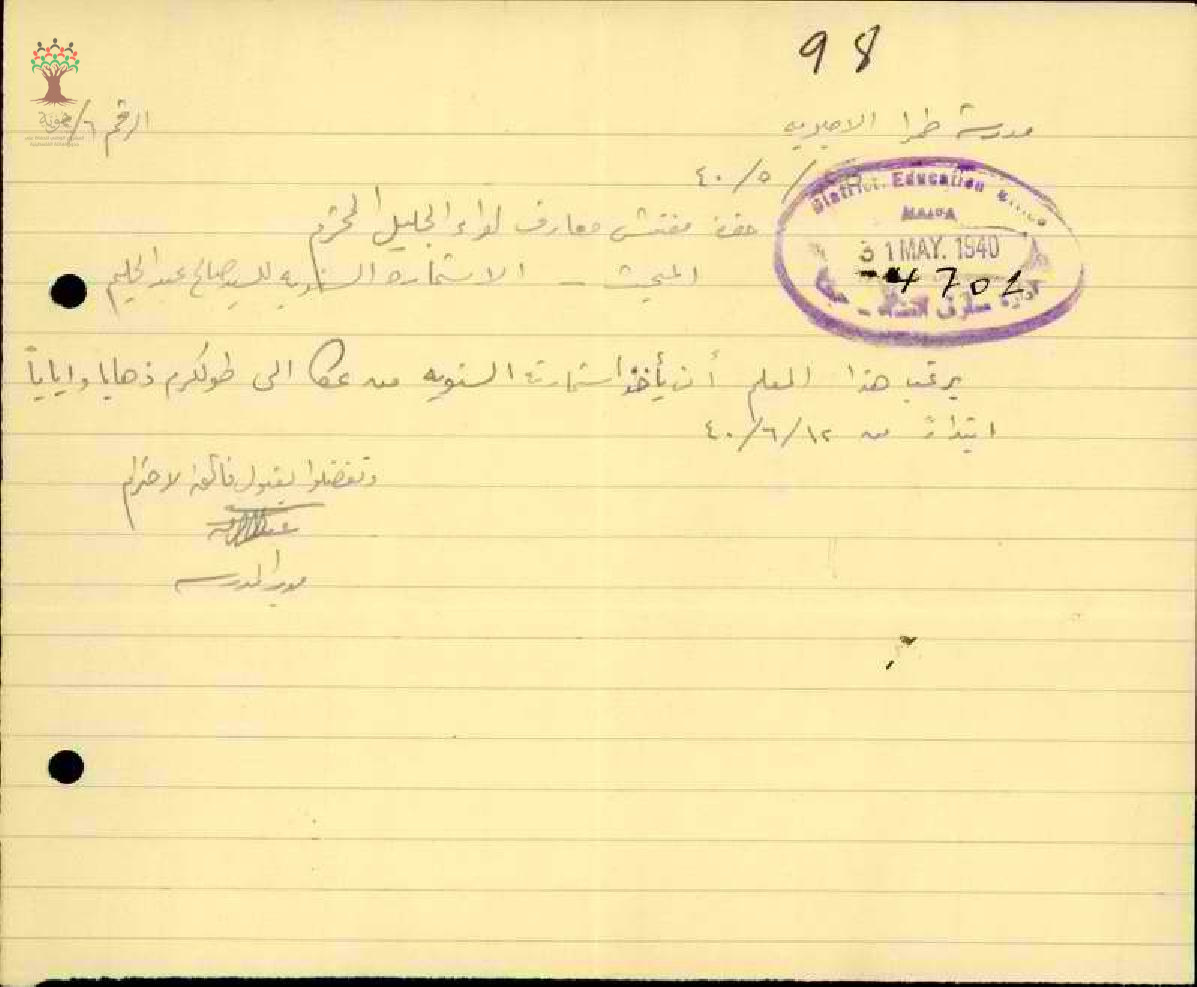 98
مدرسة طمرا الاميرية
الرقم /٦
/٥/٤٠
حضرة مفتش معارف لواء الجليل المحترم
المبحث – الاستمارة السنوية للسيد صالح عبد الحليم
District Education Office
HAIFA
31 MAY. 1940
4702
ادارة معارف اللواء – حيفا
يرغب هذا المعلم أن يأخذ استمارته السنويه من عكا الى طولكرم ذهابا وايابا
ابتداءً من ١٢/٦/٤٠
وتفضلوا بقبول فائق الاحترام
مدير المدرسه